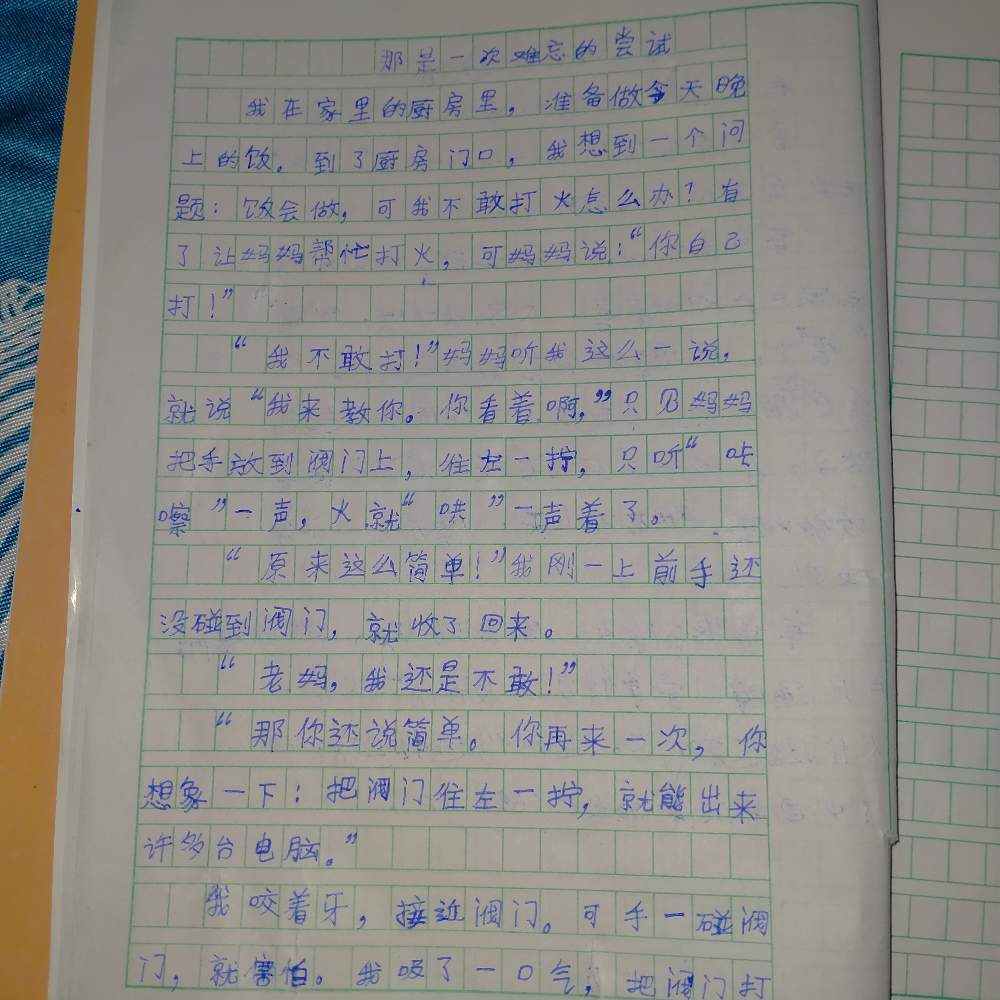 那是一次难忘的尝试
我在家里的厨房里，准备做今天晚
上的饭。到了厨房门口，我想到一个问
题：饭会做，可我不敢打火怎么办？有
了让妈妈帮忙打火，可妈妈说：“你自己
打！”
“我不敢打！”妈妈听我这么一说，
就说“我来教你。你看着啊，”只见妈妈
把手放到阀门上，往左一拧，只听“咕
嚓”一声，火就“哄”一声着了。
“原来这么简单！”我刚一上前手还
没碰到阀门，就收了回来。
“老妈，我还是不敢！”
“那你还说简单。你再来一次，你
想象一下：把阀门往左一拧，就能出来
许多台电脑。”
我咬着牙，接近阀门。可手一碰阀
门，就害怕。我吸了一口气，把阀门打